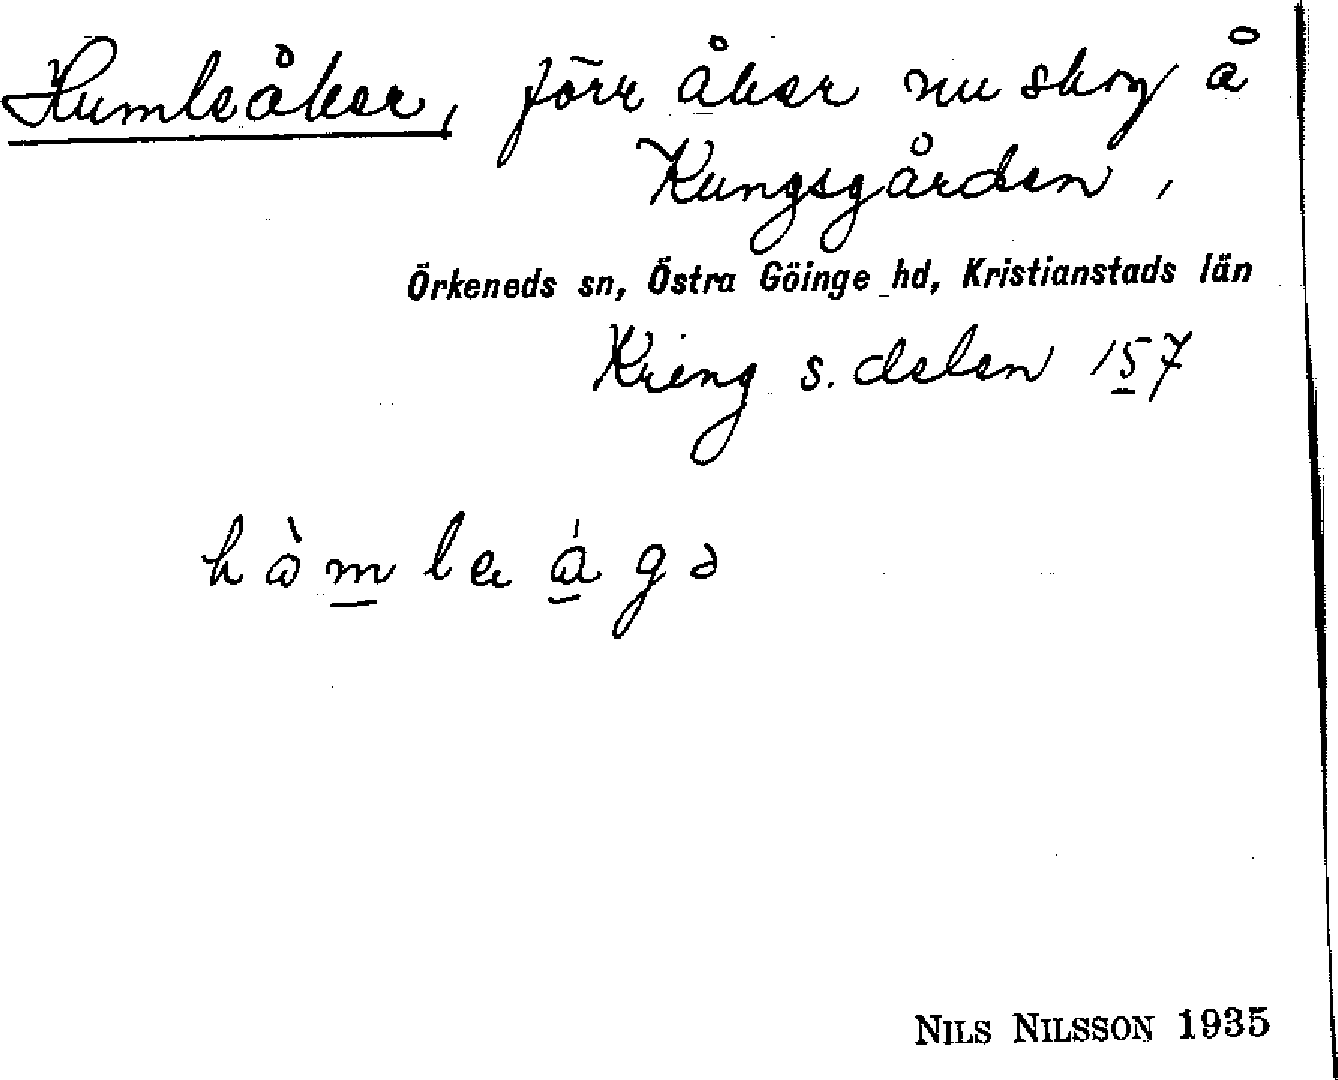 Humleåker, förr åker nu skog å
Kungsgården,
Örkeneds sn, Östra Göinge hd, Kristianstads län
s. delen 157
NILS NILSSON 1935